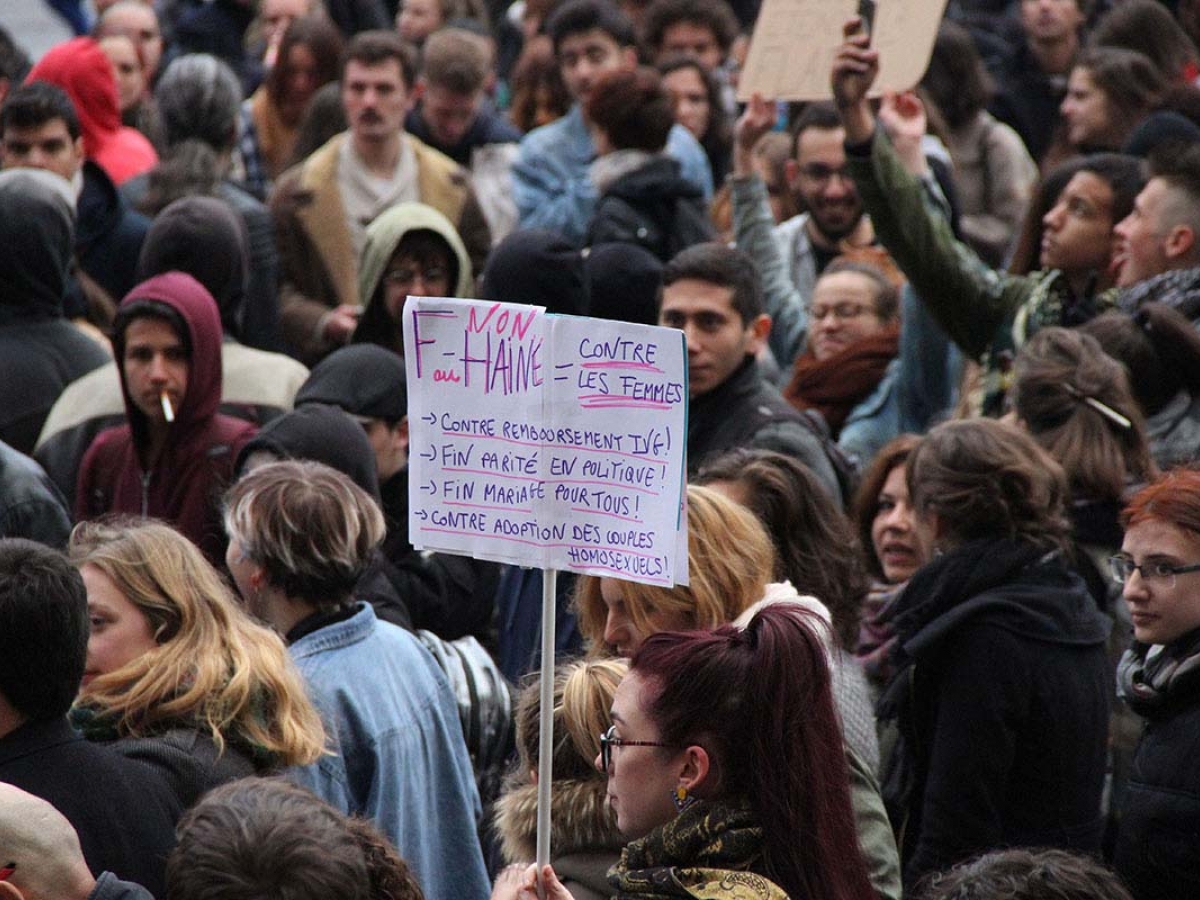 NON
F-HAINE
ou
= CONTRE
LES FEMMES
→ CONTRE REMBOURSEMENT IVG!
→ FIN PARITÉ EN POLITIQUE !
→ FIN MARIAGE POUR TOUS !
→ CONTRE ADOPTION DES COUPLES
HOMOSEXUELS!